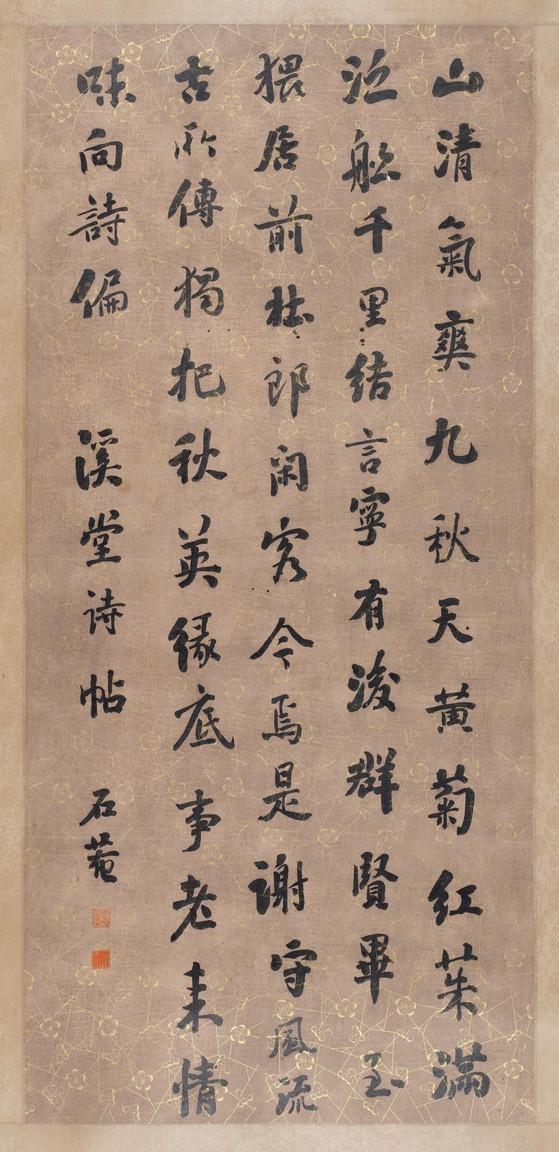 山清氣爽九秋天黃菊紅茱滿
泛舩千里結言寧有後群賢畢至
猥居前杜郎閑客今焉是謝守風流
古所傳獨把秋英緣底事老來情
味向詩偏 溪堂詩帖 石菴